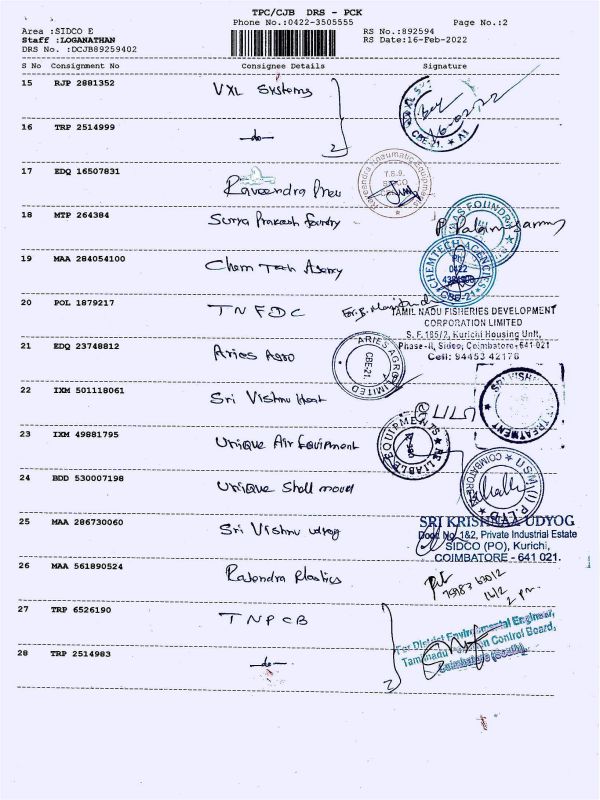 TPC/CJB DRS - PCK
Phone No.:0422-3505555 Page No.:2
Area :SIDCO E RS No.:892594
Staff :LOGANATHAN RS Date:16-Feb-2022
DRS No. :DCJB89259402
S No Consignment No Consignee Details Signature
15 RJP 2881352 VXL Systems
16-02-22
CBE-21.
16 TRP 2514999 -do-
17 EDQ 16507831 Raveendra Pneu
Raveendra Pneumatic Equipments
18 MTP 264384 Surya Prakash foundry
19 MAA 284054100 Chem Tech Agency
CHEMTECH AGENCIES
Ph:
0422
CBE-21
20 POL 1879217 TNFDC
TAMIL NADU FISHERIES DEVELOPMENT
CORPORATION LIMITED
S.F. 185/2, Kurichi Housing Unit,
Phase-II, Sidco, Coimbatore-641 021
Cell: 94453 42176
21 EDQ 23748812 Aries Agro
ARIES AGRO LIMITED
CBE-21.
22 IXM 501118061 Sri Vishnu Heat
SRI VISHNU HEAT TREATMENT
23 IXM 49881795 Unique Air Equipment
RELIABLE EQUIPMENTS
24 BDD 530007198 Unique Shell mould
COIMBATORE
USM(I) P. LTD
25 MAA 286730060 Sri Vishnu udyog
SRI KRISHNAA UDYOG
Door No.1&2, Private Industrial Estate
SIDCO (PO), Kurichi,
COIMBATORE - 641 021.
26 MAA 561890524 Rajendra Plastics
16/2
2 pm
27 TRP 6526190 TNPCB
For District Environmental Engineer,
Tamilnadu Pollution Control Board,
Coimbatore (South)
28 TRP 2514983 -do-